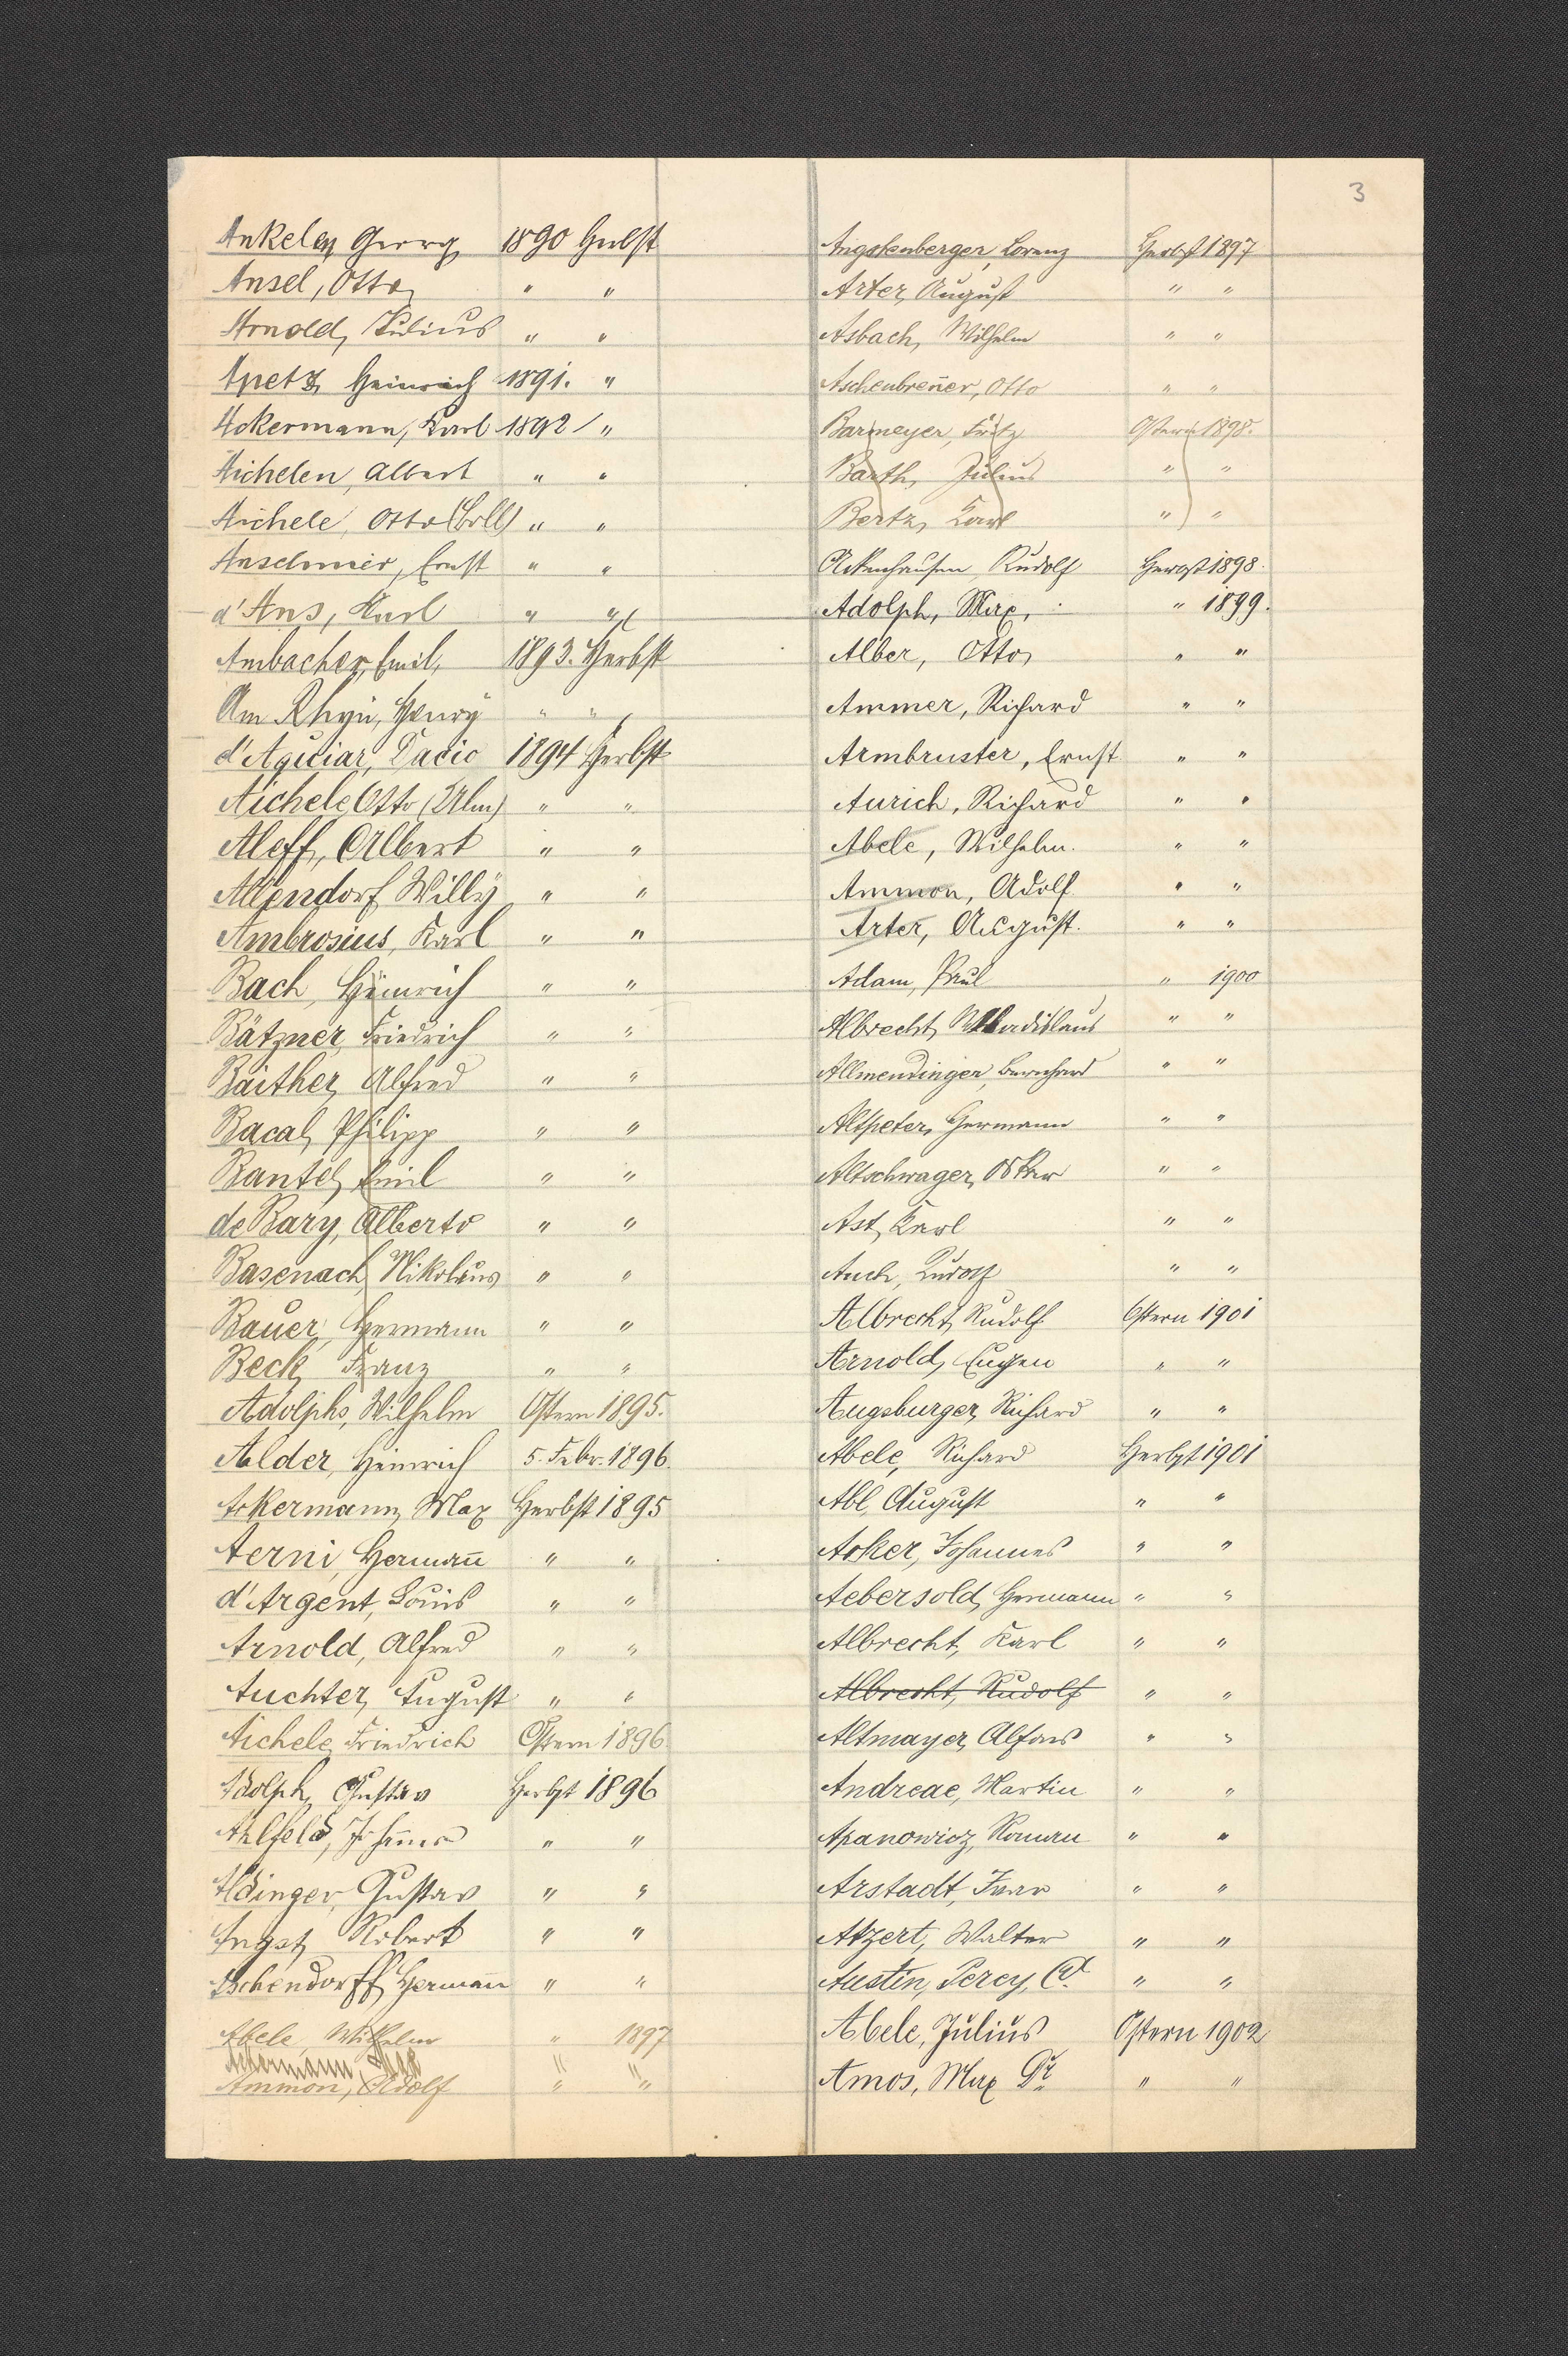 3
Ankelen Georg 1890 Herbst
Ansel, Otto " "
Arnold, Julius " "
Apetz, Heinrich 1891. "
Ackermann, Karl 1892 "
Aichelen, Albert " "
Aichele, Otto (Boll) " "
Anselmier, Ernst " "
d'Ans, Karl " "
Ambacher, Emil, 1893. Herbst
Am Rhyn, Henry " "
d'Aguiar, Dacio 1894 Herbst
Aichele Otto (Ulm) " "
Aleff, Albert " "
Allendorf Willy " "
Ambrosius, Karl " "
Bach, Heinrich " "
Bätzner, Friedrich " "
Baither, Alfred " "
Bacal, Philipp " "
Bantel, Emil " "
de Bary, Alberto " "
Basenach, Nikolaus " "
Bauer, Hermann " "
Beck, Franz " "
Adolphs, Wilhelm Ostern 1895.
Alder, Heinrich 5. Febr. 1896.
Ackermann, Max Herbst 1895
Aerni, Herman̅n " "
d'Argent, Louis " "
Arnold, Alfred " "
Auchter, August " "
Aichele, Friedrich Ostern 1896
Adolph, Gustav Herbst 1896
Ahlfeld, " "
Aldinger, Gustav " "
Angst, Robert " "
Aschendorff, Hermann " "
Abele, Wilhelm " 1897
Ackermann Max " "
Ammon, Adolf " "
Angstenberger, Lorenz Herbst 1897
Arter, August " "
Asbach, Wilhelm " "
Aschenbren̅er, Otto " "
Barmeyer, Fritz Ostern 1898.
Barth, Julius " "
Bertz, Karl " "
Ackenhausen, Rudolf Herbst 1898.
Adolph, Max, " 1899.
Alber, Otto, " "
Ammer, Richard " "
Armbruster, Ernst " "
Aurich, Richard " "
Abele, Wilhelm. " "
Ammon, Adolf " "
Arter, August. " "
Adam, Paul " 1900
Albrecht, Wladislaus " "
Allmendinger, Bernhard " "
Altpeter, Hermann " "
Altschwager, Oskar " "
Ast, Karl " "
Auch, Rudolf " "
Albrecht, Rudolf Ostern 1901
Arnold, Eugen " "
Augsburger, Richard " "
Abele, Richard Herbst 1901
Abl, August " "
Acker, Johannes " "
Aebersold, Hermann " "
Albrecht, Karl " "
Albrecht, Rudolf " "
Altmayer, Alfons " "
Andreae, Martin " "
Apanowicz, Roman " "
Arstadt, Ivar " "
Atzert, Walter " "
Austin, Percy, " "
Abele, Julius Ostern 1902
Amos, Max Dr " "